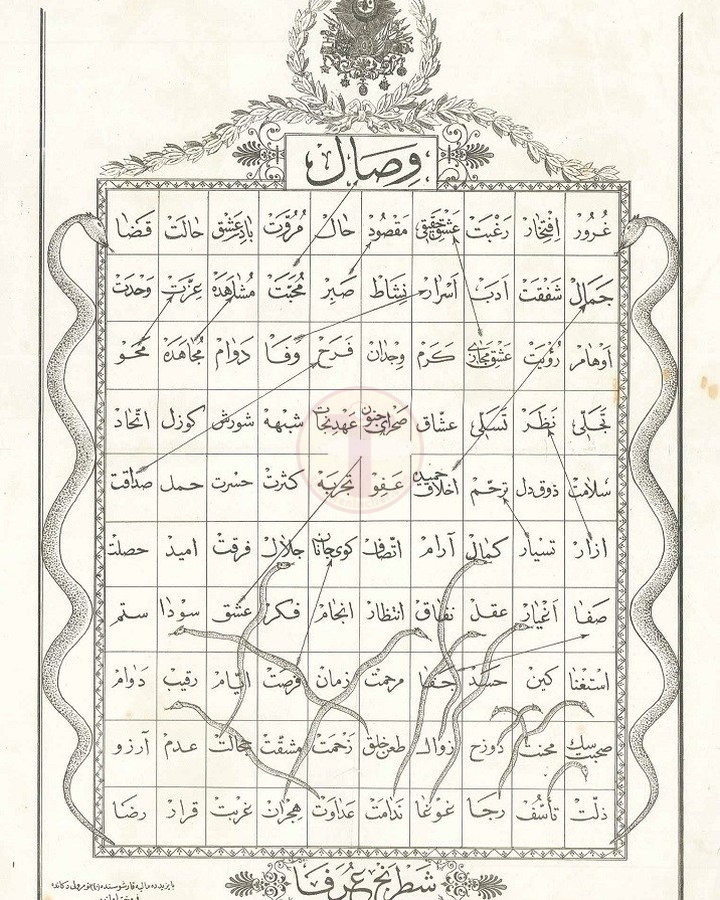 وصال
غرور افتخار رغبت عشق حقیقی مقصود حال مروّت بادۀ عشق حالت قضا
جمال شفقت ادب اسرار نشاط صبر محبّت مشاهده عزّت وحدت
اوهام رؤیت عشق مجازی کرم وجدان فرح وفا دوام مجاهده محو
تجلّی نظر تسلّی عشاق صحرای جنون عهد نجات شبهه شورش کوزل اتّحاد
سلامت ذوق دل ترحّم اخلاق حمیده عفو تجربه کثرت حسرت حمل صداقت
ازار تسیار کمال آرام اتّصاف کوی جانان جلال فرقت امید حصلت
صفا اغیار عقل نفاق انتظار انجام فکر عشق سودا ستم
استغنا کین حسد جفا مرحمت زمان فرصت ایّام رقیب دوام
صحبت سك محنت دوزخ زوال طعن خلق زحمت مشقّت عدم آرزو
ذلّت تأسّف رجا غوغا ندامت عداوت هجران غربت قرار رضا
شطرنج عرفا